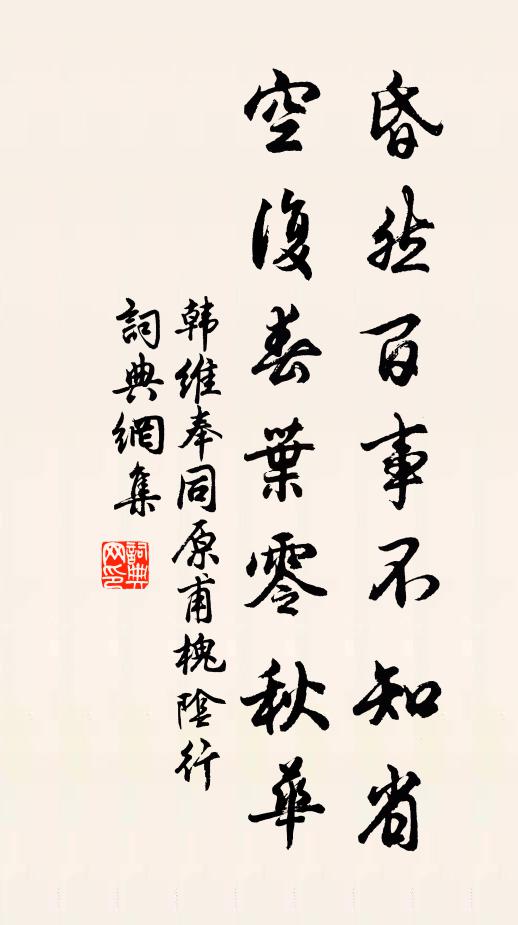 昏然百事不知省
空復春葉零秋華
韩維奉同原甫槐陰行
詞典網集
詞典网印